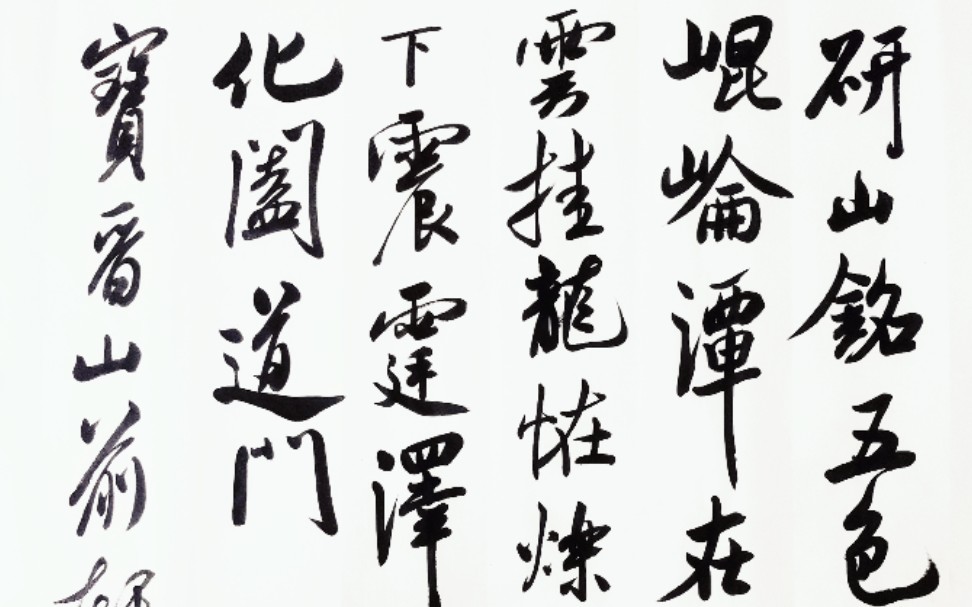 研山銘五色
崐崘潭在
雲挂龍恠爍
下震霆澤
化闔道門
寶晉山前